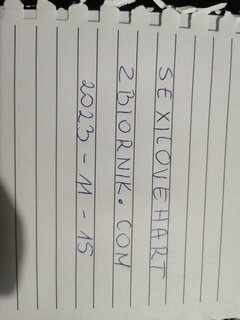 SEXILOVEHART
ZBIORNIK.COM
2023-11-15